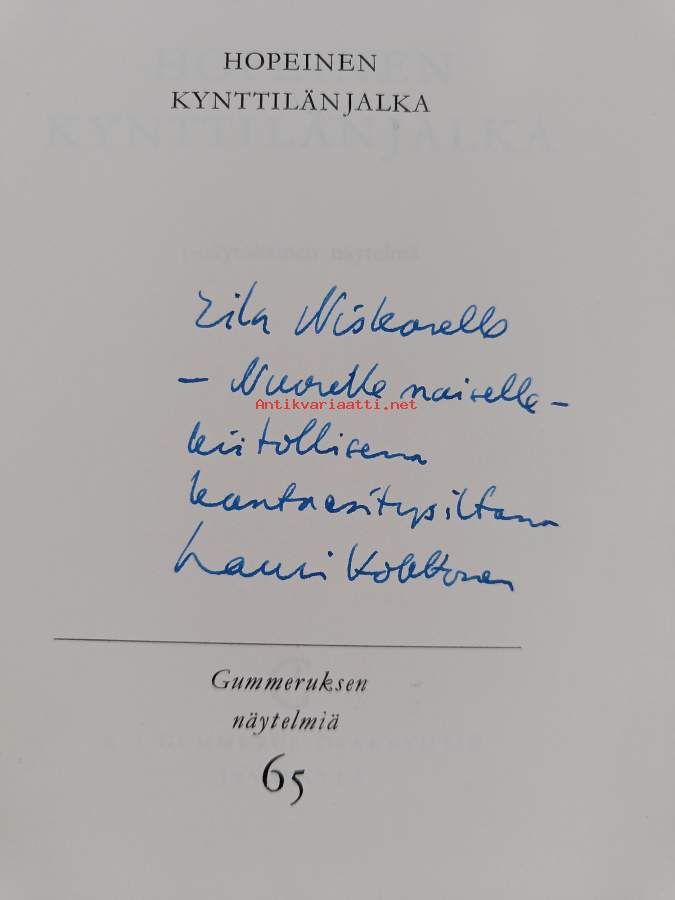 HOPEINEN
KYNTTILÄNJALKA
Eila Niskaselle
– Nuorelle naiselle –
Antikvariaatti.net
kiitollisena
kantaesitysiltana
Lauri Kokkonen
Gummeruksen
näytelmiä
65